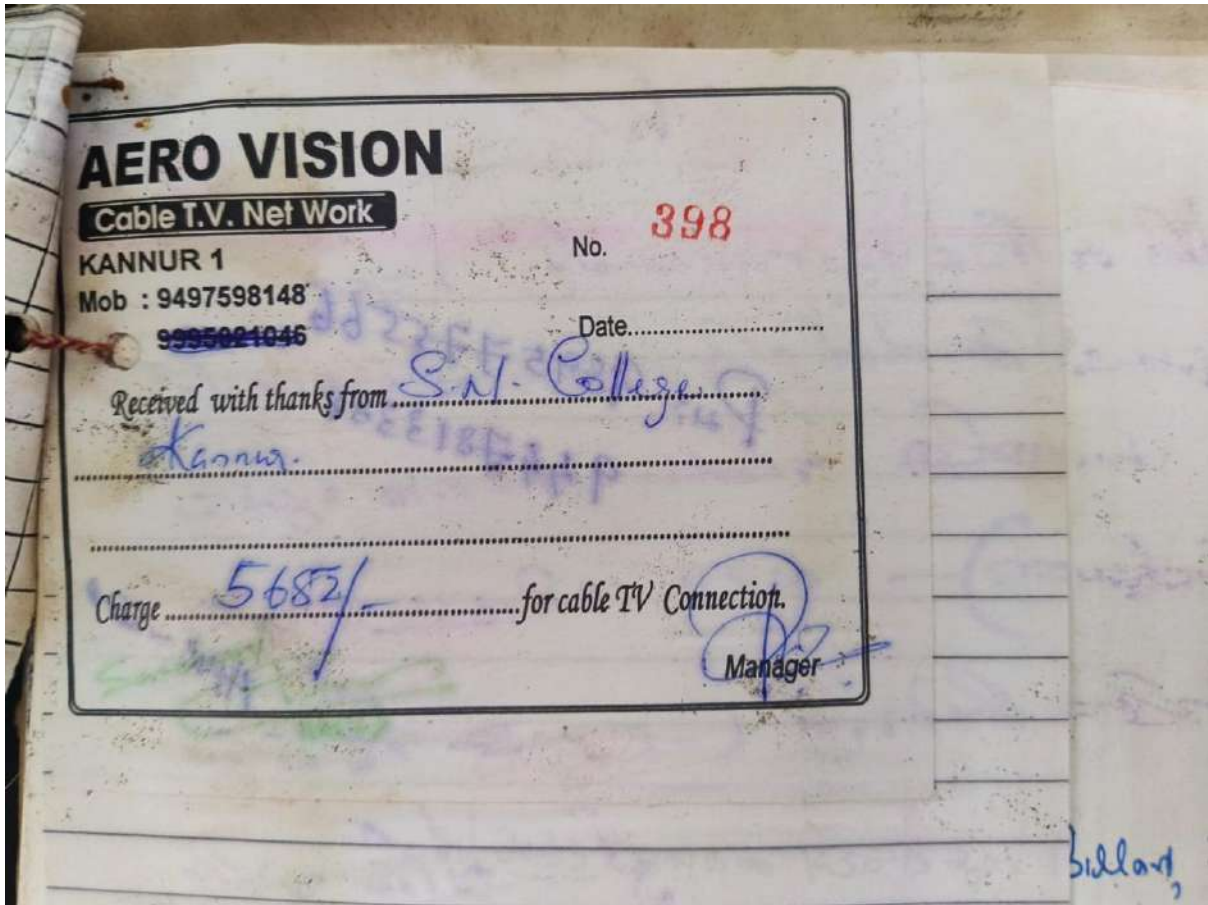 AERO VISION
Cable T.V. Net Work
KANNUR 1
No. 398
Mob : 9497598148
9995021046
Date..........................
Received with thanks from S.N. College
Kannur.
Charge 5682/- for cable TV Connection.
Manager